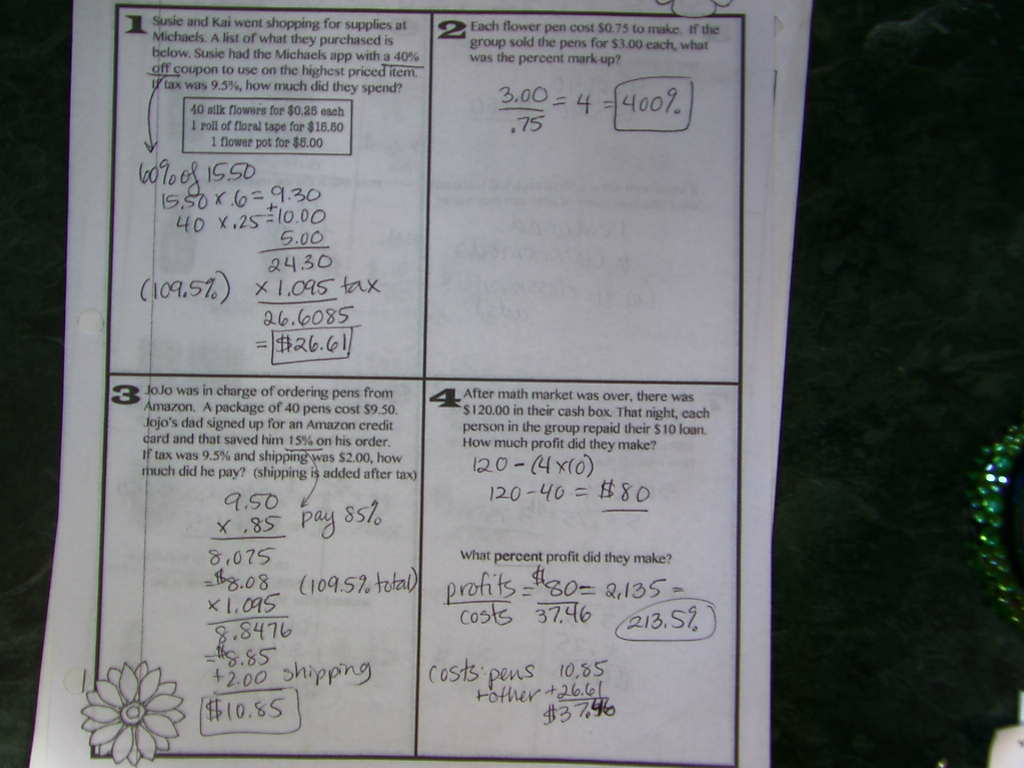 1 Susie and Kai went shopping for supplies at
Michaels. A list of what they purchased is
below. Susie had the Michaels app with a 40%
off coupon to use on the highest priced item.
If tax was 9.5%, how much did they spend?
40 silk flowers for $0.25 each
1 roll of floral tape for $15.50
1 flower pot for $5.00
60% of 15.50
15.50 x .6 = 9.30
40 x .25 = + 10.00
5.00
24.30
(109.5%) x 1.095 tax
26.6085
= $26.61
2 Each flower pen cost $0.75 to make. If the
group sold the pens for $3.00 each, what
was the percent mark-up?
3.00
.75
= 4 = 400%
3 JoJo was in charge of ordering pens from
Amazon. A package of 40 pens cost $9.50.
Jojo's dad signed up for an Amazon credit
card and that saved him 15% on his order.
If tax was 9.5% and shipping was $2.00, how
much did he pay? (shipping is added after tax)
9.50
x .85 pay 85%
8.075
= $8.08 (109.5% total)
x 1.095
8.8476
= $8.85
+2.00 shipping
$10.85
4 After math market was over, there was
$120.00 in their cash box. That night, each
person in the group repaid their $10 loan.
How much profit did they make?
120 - (4x10)
120 - 40 = $80
What percent profit did they make?
profits = $80 = 2.135 =
costs 37.46 213.5%
costs: pens 10.85
+ other + 26.61
$37.46